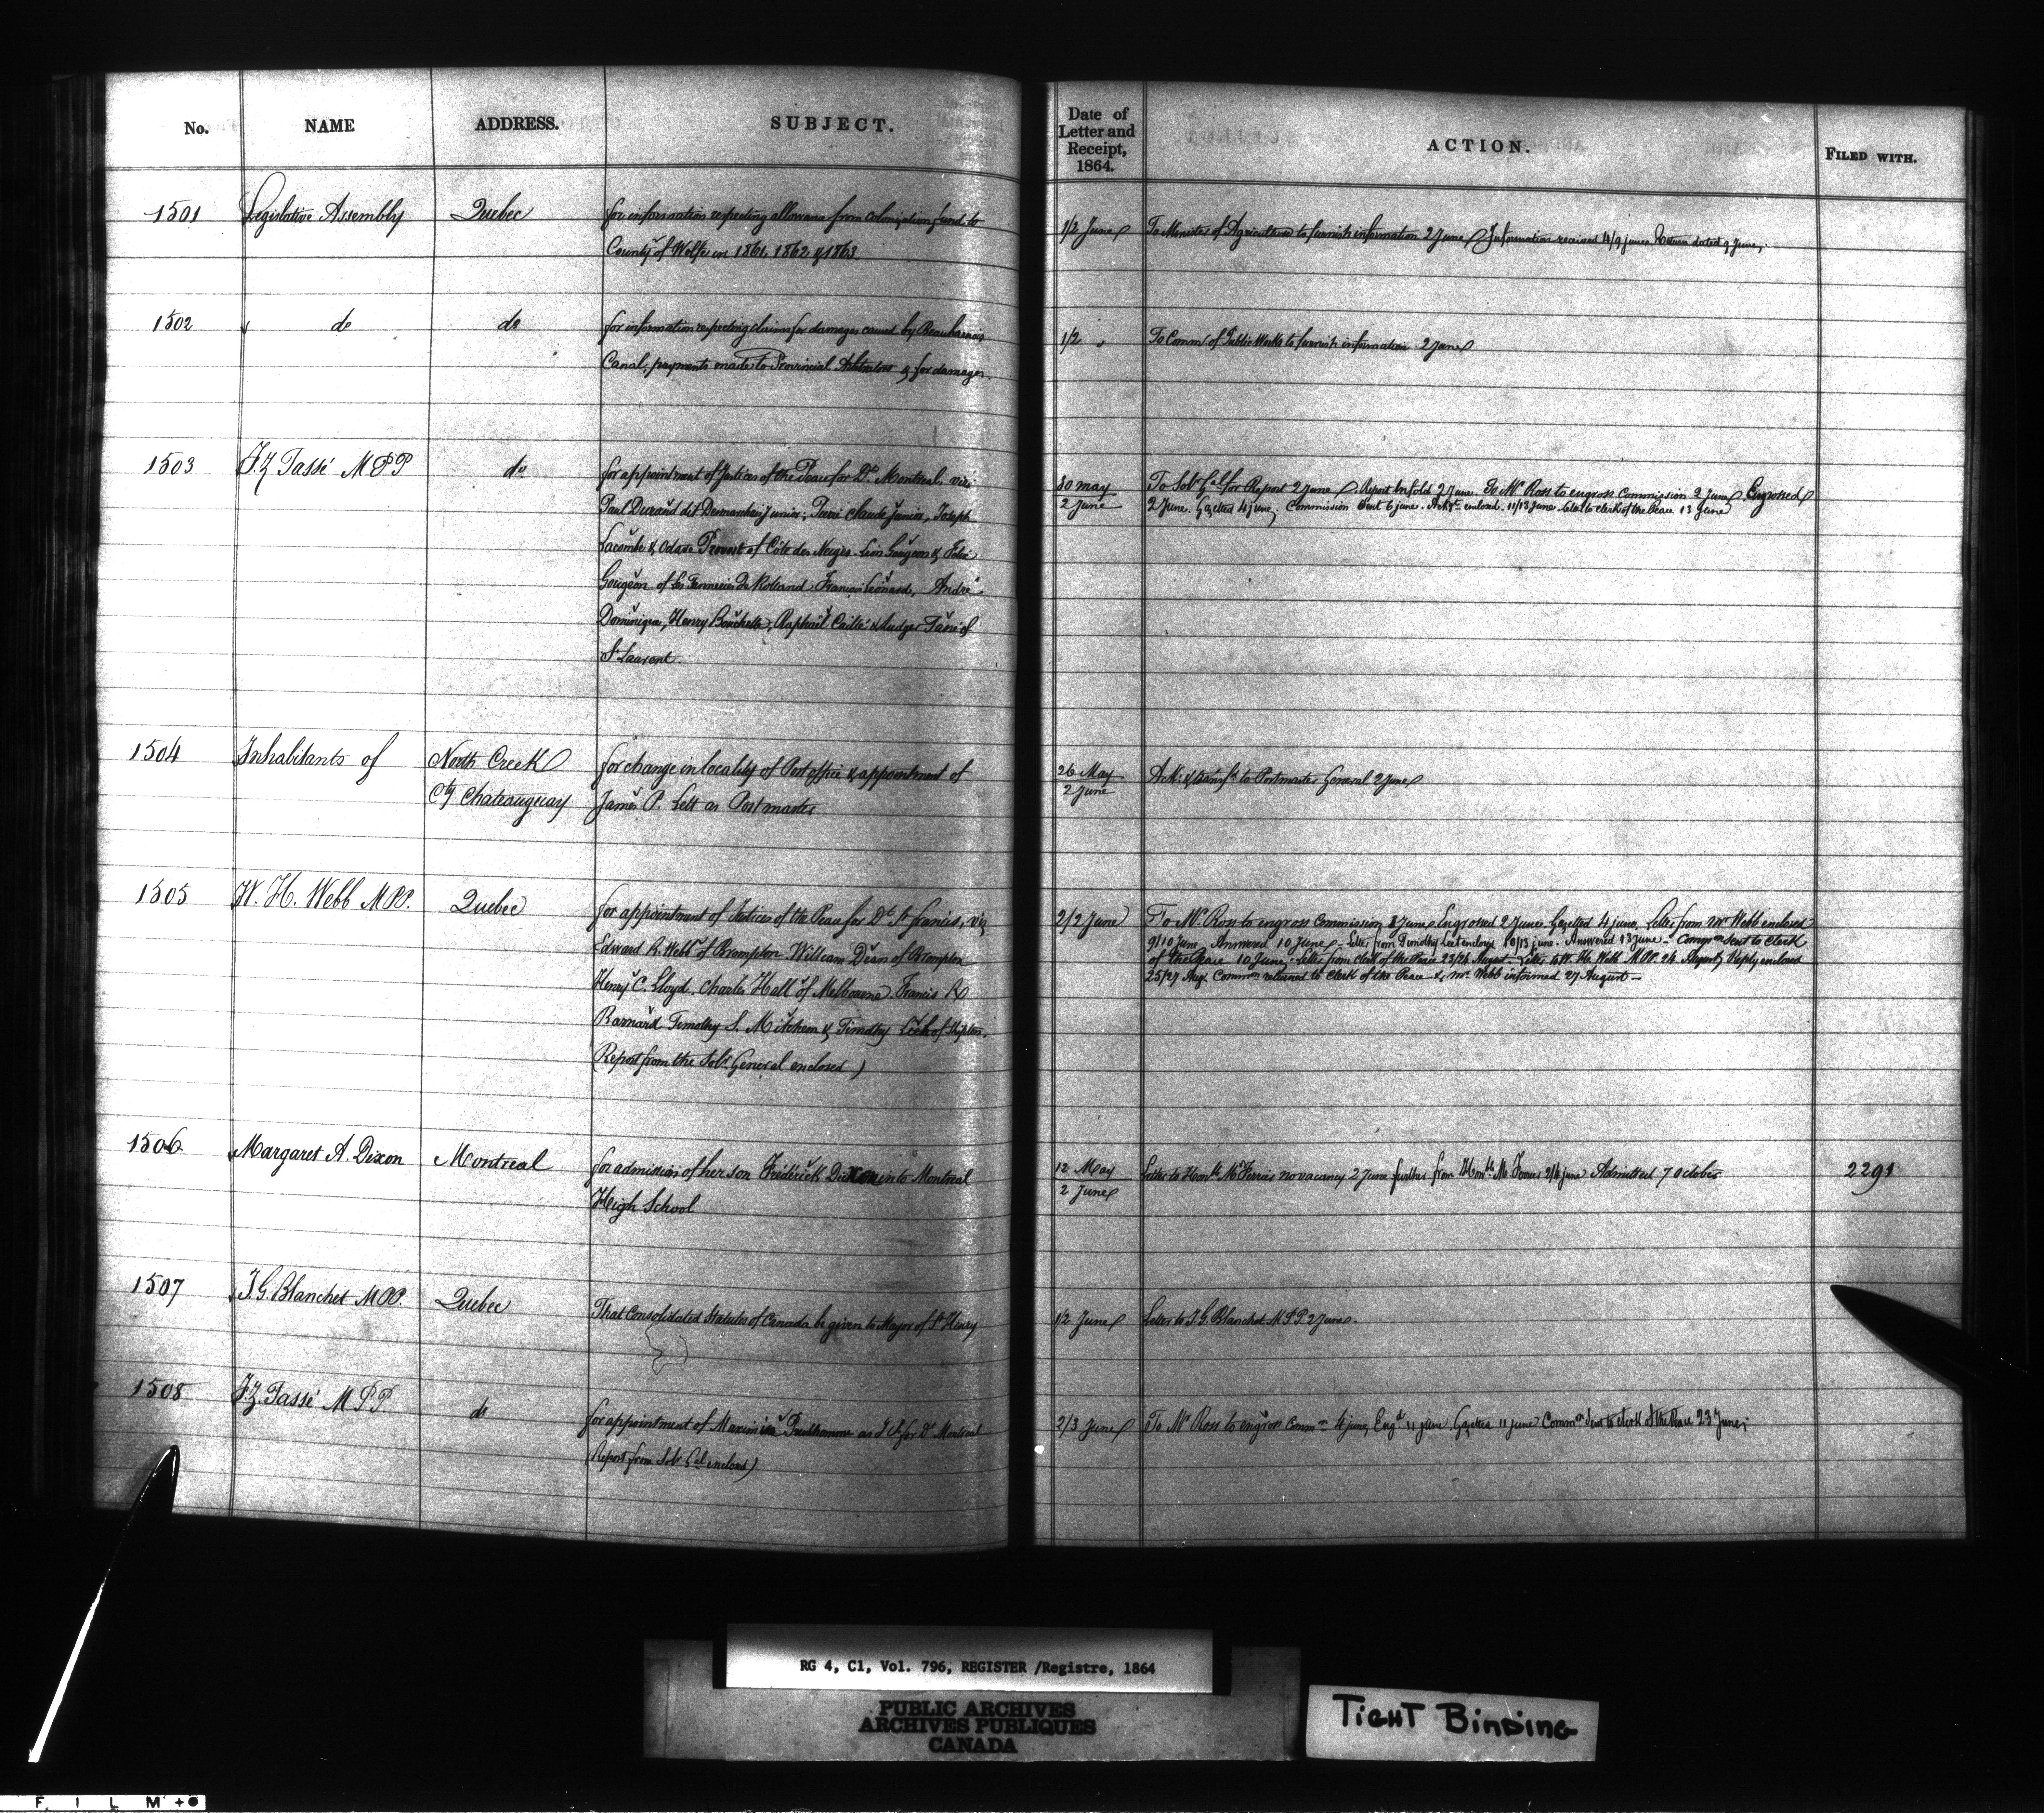 No. NAME ADDRESS. SUBJECT. Date of Letter and Receipt, 1864. ACTION. FILED WITH.
1501 Legislative Assembly Quebec for information respecting allowance from Colonization fund to
County of Wolfe in 1861, 1862 & 1863
1/2 June To Minister of Agriculture to furnish information 2 June Information received 4/9 June. Return dated 9 June;
1502 do do for information respecting claims for damages caused by Beauharnois
Canal, payments made to Provincial Arbitrators & for damages
1/2 " To Commr of Public Works to furnish information 2 June
1503 F. Z Tassé M P P do for appointment of Justices of the Peace for Dt Montreal viz:
Paul Durand dit Desmarchais Junior, Pierre Claude Junior, Joseph
Lacombe & Odave Provost of Côte des Neiges Léon Gougeon & Felix
Gougeon of Francois Leonard, André
Dominique, Henry Raphael Caillé & Tassé of
St Laurent.
30 May
2 June
To Solr Genl for Report 2 June. Report Infold 2 June. To Mr Ross to engross Commission 2 June Engrossed
2 June. Gazetted 4 June; Commission sent 6 June. enclosed 11/13 June. Letter to Clerk of the Peace 13 June
1504 Inhabitants of North Creek
Cty Chateauguay
for change in locality of Post office & appointment of
James P. Lett as Postmaster
26 May
2 June
Ack: & transfd to Postmaster General 2 June
1505 W. H. Webb M P P. Quebec for appointment of Justices of the Peace for Dt St Francis, viz
Edward R. Webb of Brompton William Dixon of Brompton
Henry C. Lloyd, Charles Hall of Melbourne Francis R
Barnard Timothy S. Mitchem & Timothy Leet of Shipton.
(Report from the Solr General enclosed)
2/2 June To Mr Ross to engross Commission 2 June Engrossed 2 June. Gazetted 4 June, Letter from Mr Webb enclosed
9/10 June Answered 10 June – Letter from Timothy Leet enclosed 10/13 June. Answered 13 June – Commn sent to Clerk
of the Peace 10 June; Letter from Clerk of the Peace 23/24 August – Letter to W. H. Webb M.P.P. 24 August Reply enclosed
25/27 Aug. Commn returned to Clerk of the Peace & Mr Webb informed 27 August –
1506 Margaret A. Dixon Montreal for admission of her son Frederick Dixon into Montreal
High School
12 May
2 June
Letter to Honble Mr Ferrier no vacancy 2 June further from Honble Mr Ferrier 2/4 June Admitted 7 October 2291
1507 J. G. Blanchet M P P. Quebec That Consolidated Statutes of Canada be given to Mayor of St Henry
1/2 June Letter to J. G. Blanchet M P P 2 June.
1508 F. Z. Tassé M P P do for appointment of Maximien Prudhomme as J P for Dt Montreal
(Report from Solr Gel enclosed)
2/3 June To Mr Ross to engross Commn 4 June, Engd 11 June Gazetted 11 June Commn sent to Clerk of the Peace 23 June;
RG 4, C1, Vol. 796, REGISTER /Registre, 1864
PUBLIC ARCHIVES
ARCHIVES PUBLIQUES
CANADA
TIGHT BINDING
F I L M